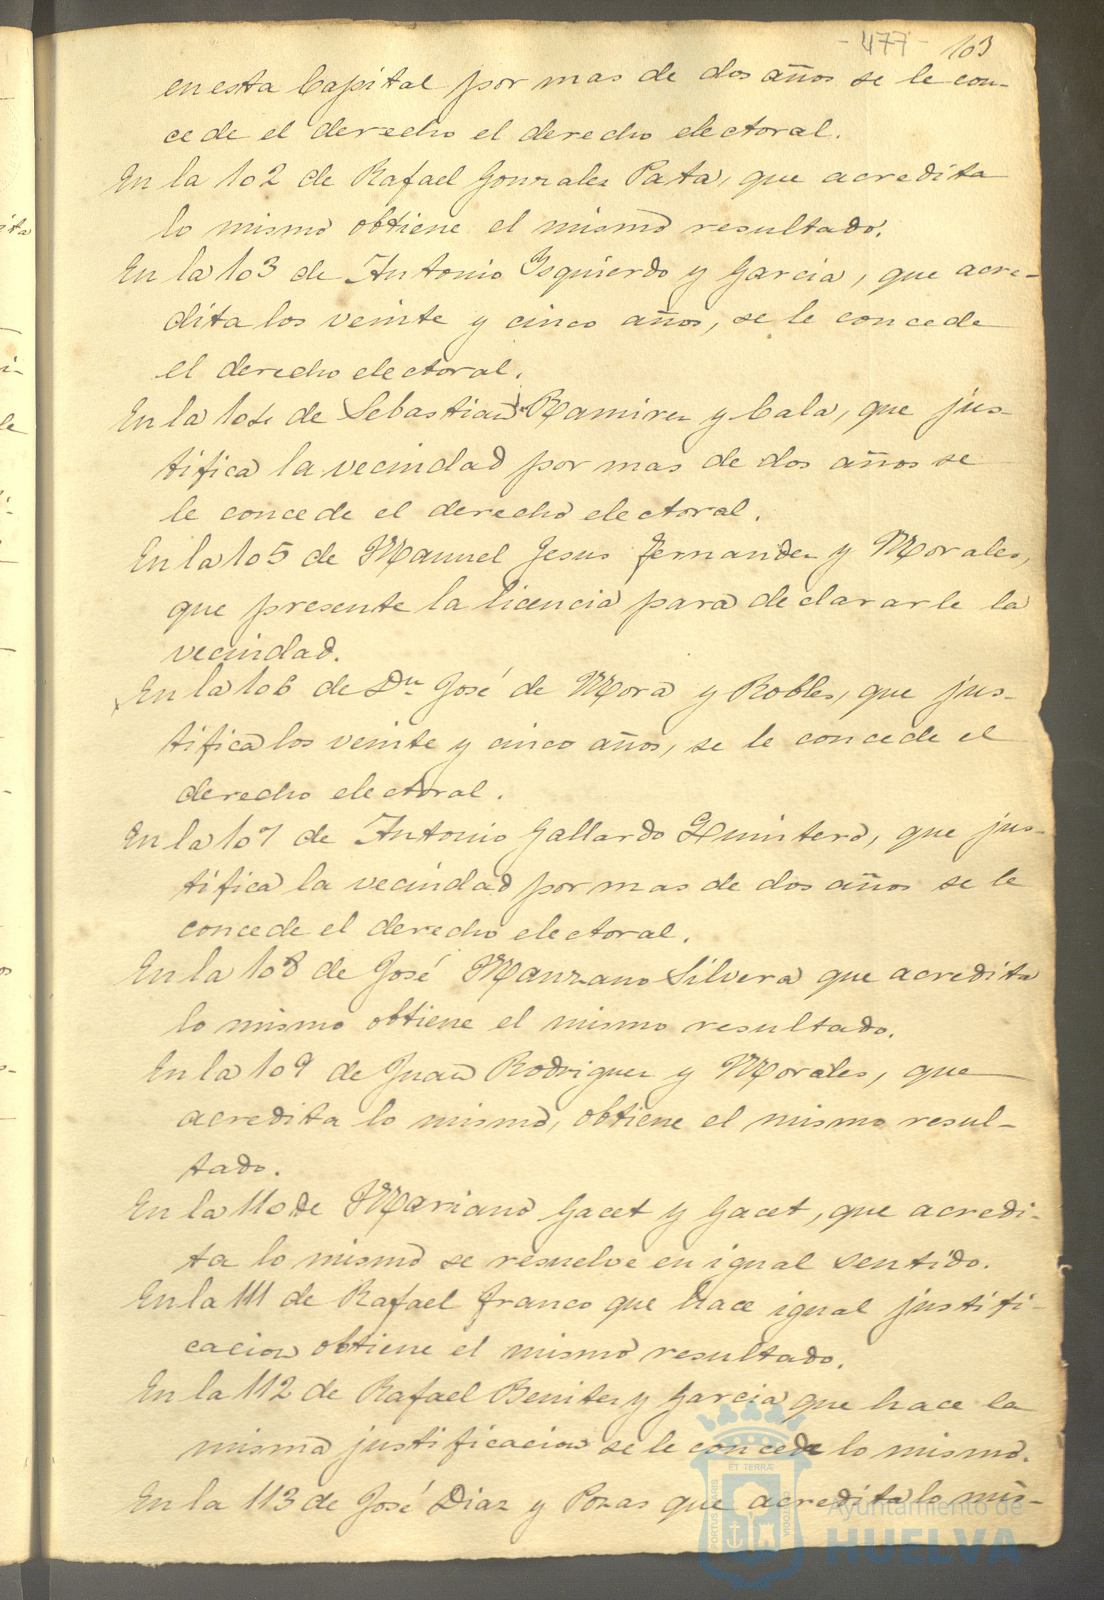 - 477 - 103
en esta Capital por mas de dos años se le con-
cede el derecho el derecho electoral.
En la 102 de Rafael Gonzalez Pata, que acredita
lo mismo obtiene el mismo resultado.
En la 103 de Antonio Ysquierdo y Garcia, que acre-
dita los veinte y cinco años, se le concede
el derecho electoral.
En la 104 de Sebastian Ramirez y Cala, que jus-
tifica la vecindad por mas de dos años se
le concede el derecho electoral.
En la 105 de Manuel Jesus Fernandez y Morales,
que presente la licencia para declararle la
vecindad.
En la 106 de Dn José de Mora y Robles, que jus-
tifica los veinte y cinco años, se le concede el
derecho electoral.
En la 107 de Antonio Gallardo Quintero, que jus-
tifica la vecindad por mas de dos años se le
concede el derecho electoral.
En la 108 de José Manzano Silvera que acredita
lo mismo obtiene el mismo resultado.
En la 109 de Juan Rodriguez y Morales, que
acredita lo mismo, obtiene el mismo resul-
tado.
En la 110 de Mariano Gacet y Gacet, que acredi-
ta lo mismo se resuelve en igual sentido.
En la 111 de Rafael Franco que hace igual justifi-
cacion obtiene el mismo resultado.
En la 112 de Rafael Benitez y Garcia que hace la
misma justificacion se le concede lo mismo.
En la 113 de José Diaz y Pozas que acredita lo mis-
PORTUS MARIS ET TERRÆ CUSTODIA
Ayuntamiento de
HUELVA